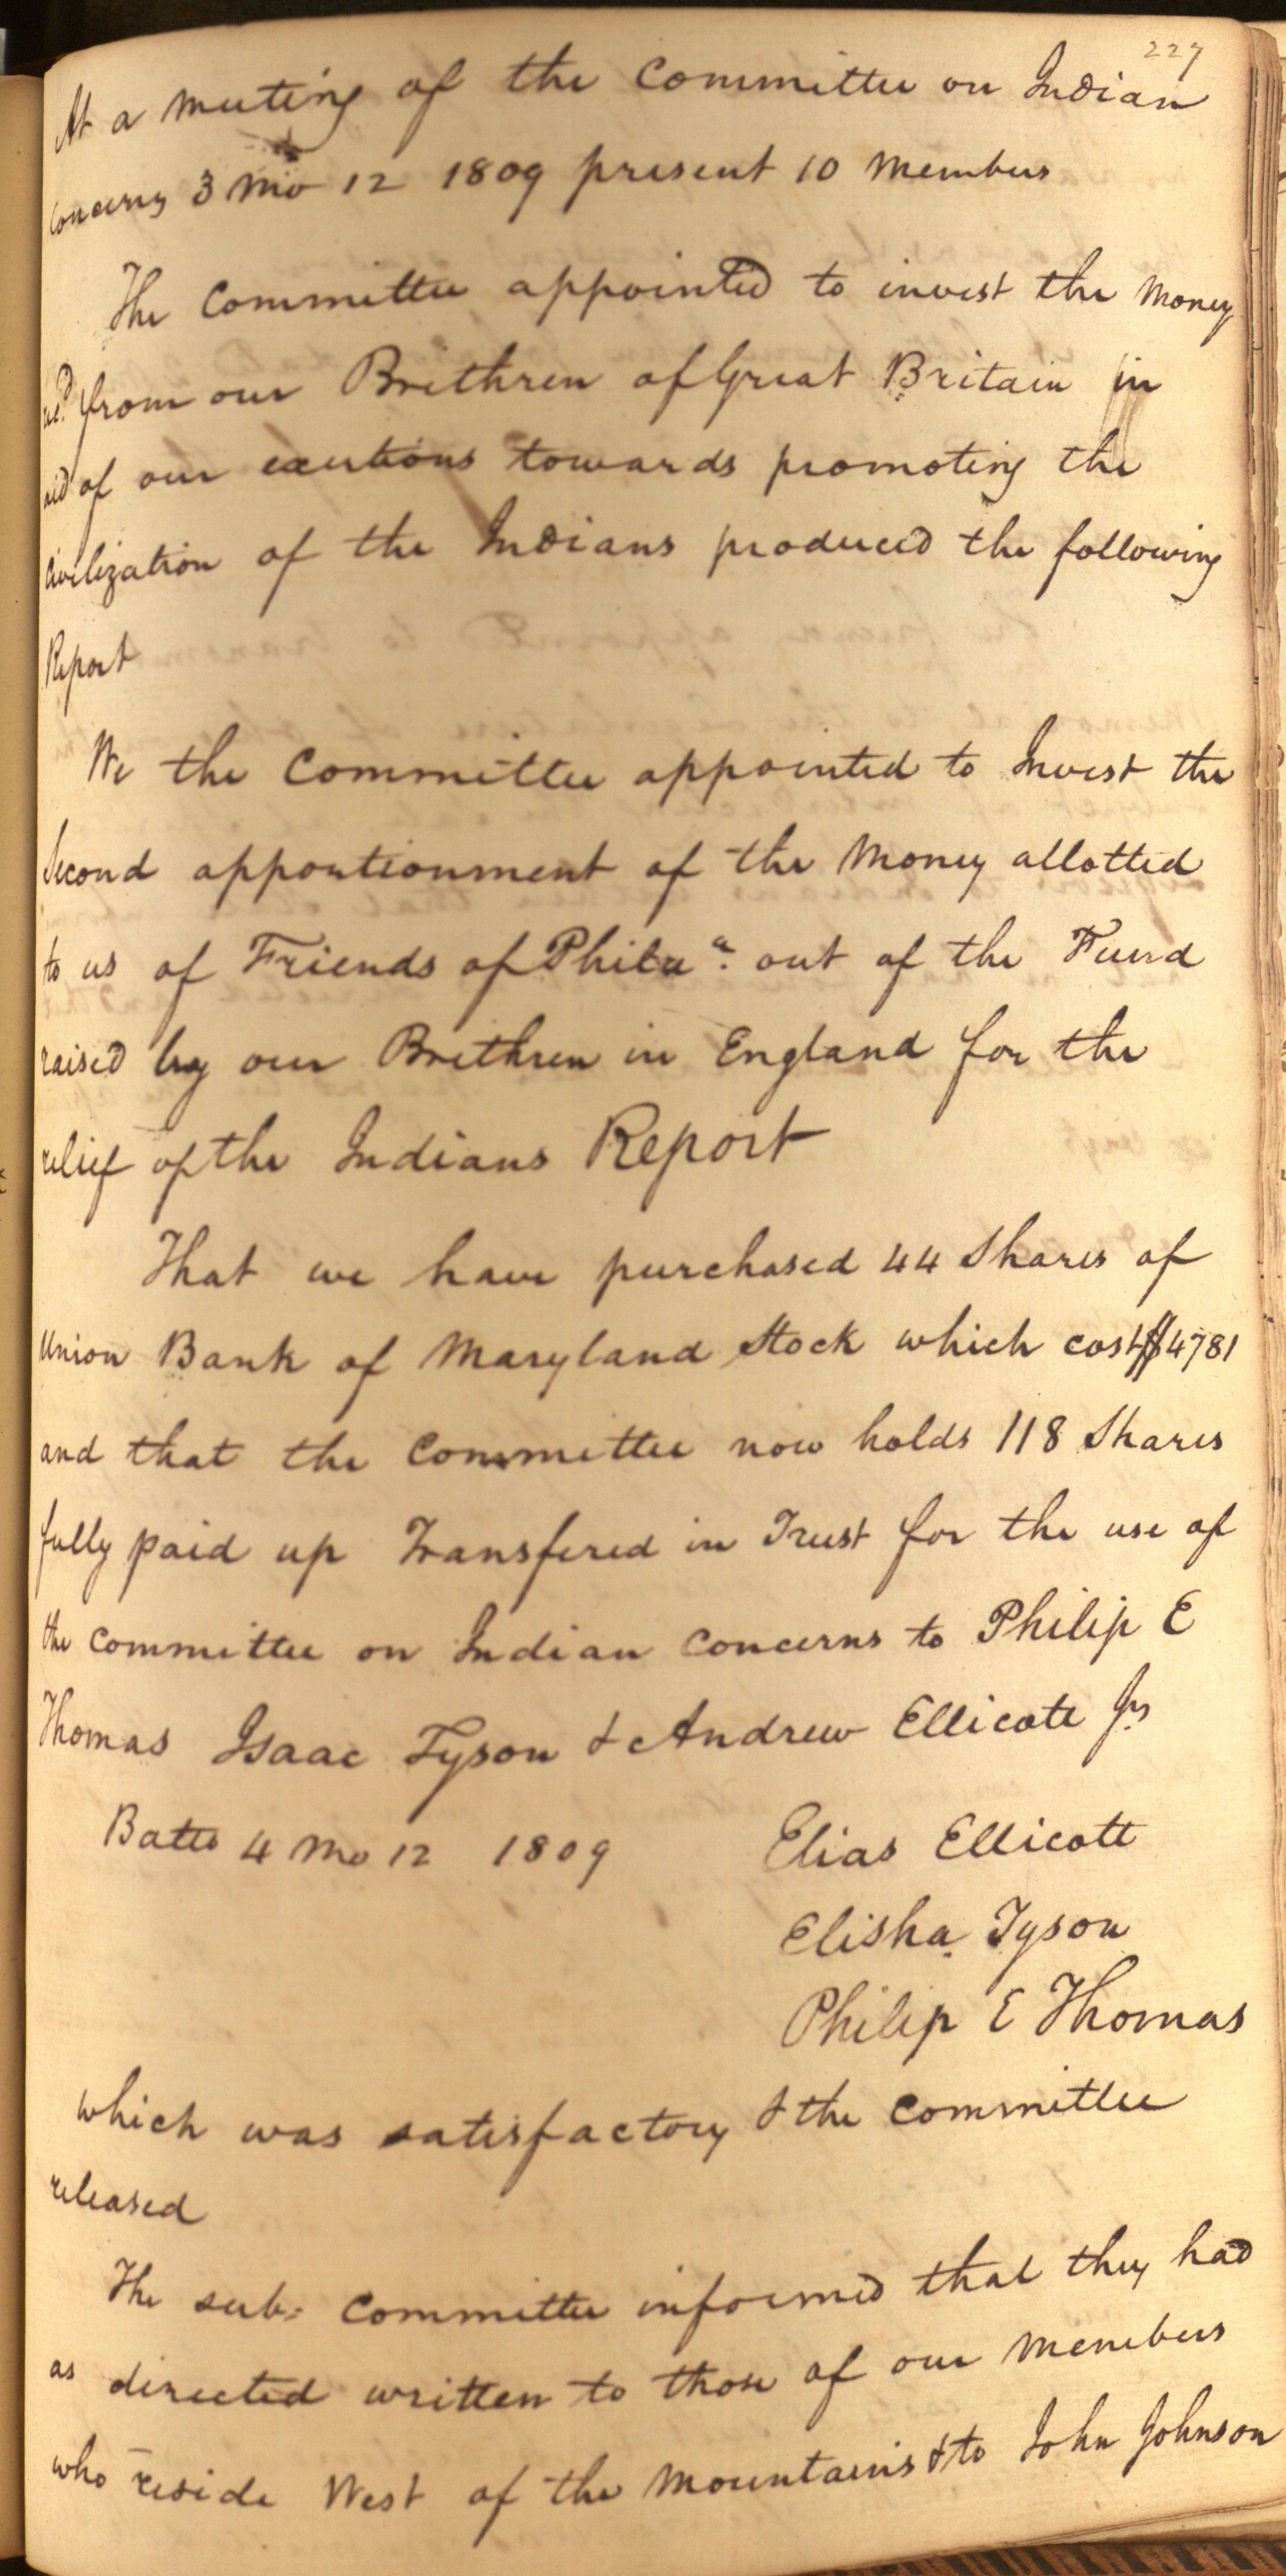 227
At a meeting of the Committee on Indian
Concerns 3 Mo 12 1809 present 10 Members
The Committee appointed to invest the Money
recd from our Brethren of Great Britain in
aid of our exertions towards promoting the
Civilization of the Indians produced the following
Report
We the Committee appointed to Invest the
Second apportionment of the Money allotted
to us of Friends of Phila a. out of the Fund
raised by our Brethren in England for the
relief of the Indians Report
That we have purchased 44 Shares of
Union Bank of Maryland Stock which cost $4781
and that the Committee now holds 118 Shares
fully paid up Transfered in Trust for the use of
the committee on Indian Concerns to Philip E
Thomas Isaac Tyson & Andrew Ellicott Jr
Balto 4 Mo 12 1809 Elias Ellicott
Elisha Tyson
Philip E Thomas
which was satisfactory & the Committee
released
The sub: Committee informed that they had
as directed written to those of our Members
who reside West of the Mountains & to John Johnson